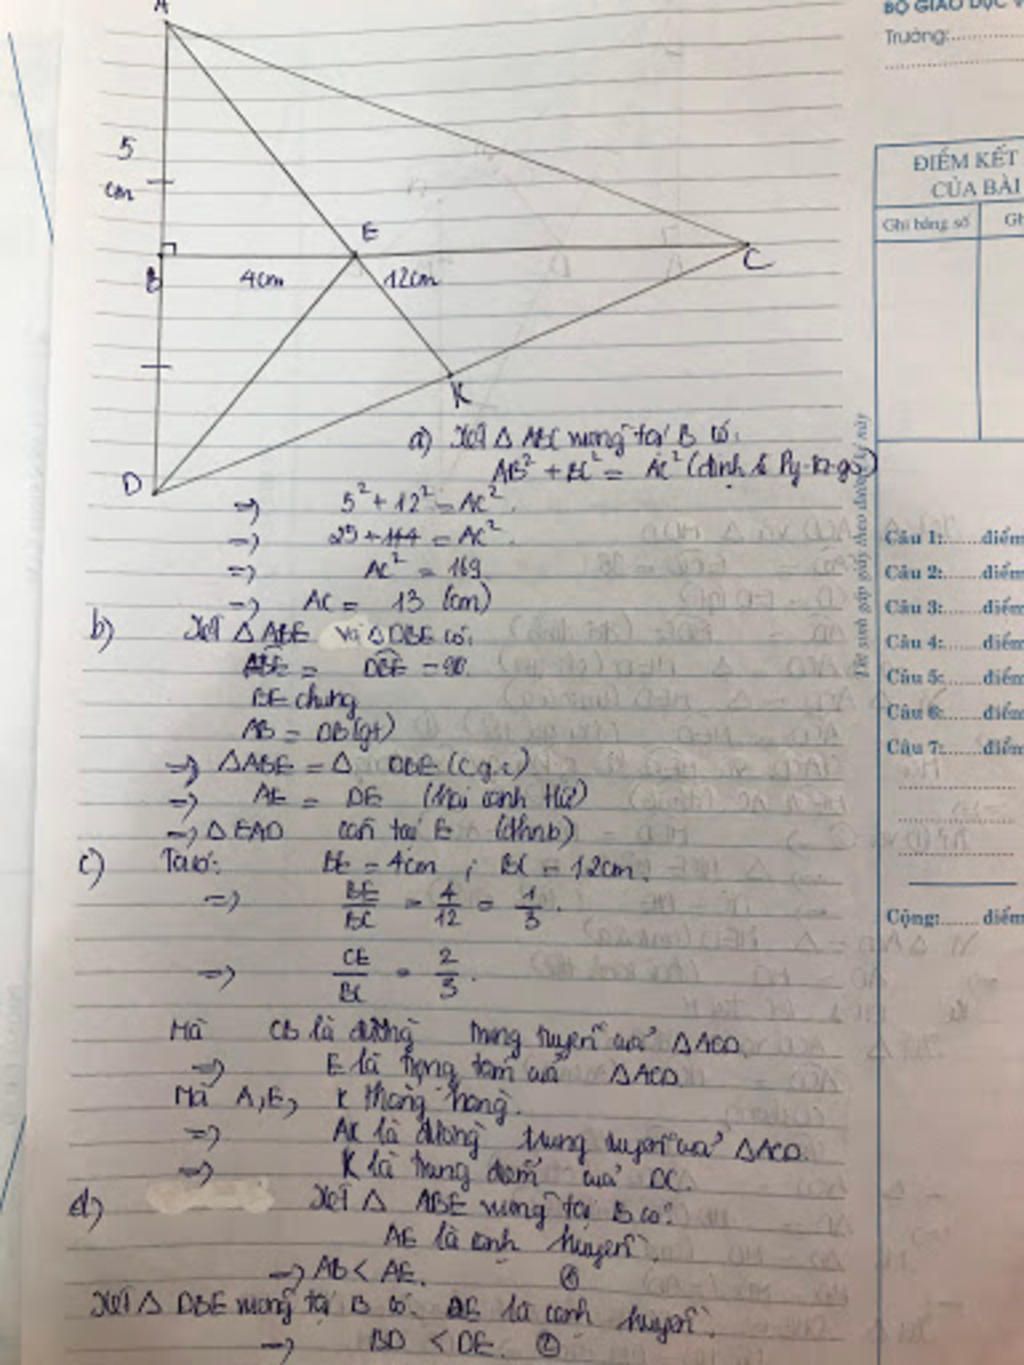 A
5
cm
B
4cm
E
12cm
C
K
D
BỘ GIÁO DỤC V
Trường:
ĐIỂM KẾT
CỦA BÀI
Ghi bằng số
Gh
Thí sinh gấp giấy theo đường kẻ này
Câu 1:......điểm
Câu 2:......điểm
Câu 3:......điểm
Câu 4:......điểm
Câu 5:......điểm
Câu 6:......điểm
Câu 7:......điểm
Cộng:......điểm
a) Xét △ ABC vuông tại B có:
AB² + BC² = AC² (định lí Py-ta-go)
=> 5² + 12² = AC².
=> 25 + 144 = AC².
=> AC² = 169
=> AC = 13 (cm)
b) Xét △ ABE và △DBE có:
ABE = DBE = 90.
BE chung
AB = DB (gt)
=> △ABE = △ DBE (c.g.c)
=> AE = DE (hai cạnh t/ứ)
=> △ EAD cân tại E (dhnb)
c) Ta có: BE = 4cm ; BC = 12cm.
=> BE/BC = 4/12 = 1/3.
=> CE/BC = 2/3.
Mà CB là đường trung tuyến của △ACD
=> E là trọng tâm của △ACD
Mà A, E, K thẳng hàng.
=> AK là đường trung tuyến của △ACD.
=> K là trung điểm của DC.
d) Xét △ ABE vuông tại B có:
AE là cạnh huyền.
=> AB < AE.
Xét △ DBE vuông tại B có. DE là cạnh huyền.
=> BD < DE. ②